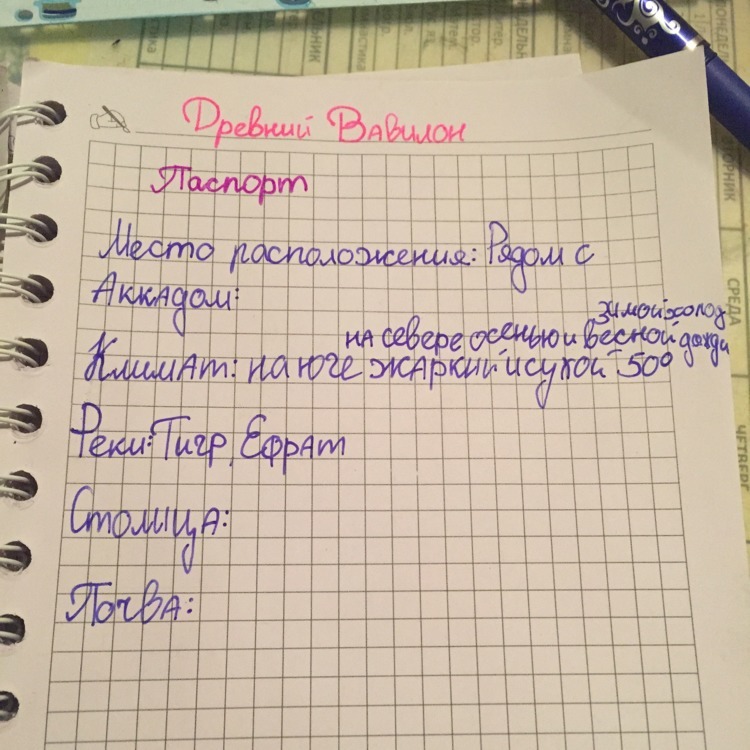 Древний Вавилон
Паспорт
Место расположения: Рядом с
Аккадом:
зимой холод
на севере осенью и весной дожди
Климат: на юге жаркий и сухой 50°
Реки: Тигр, Ефрат
Столица:
Почва:
СРЕДА
ЧЕТВЕРГ